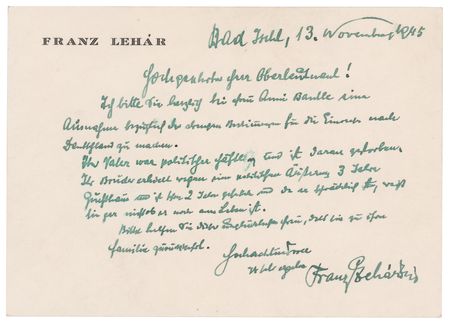 FRANZ LEHÁR
Bad Ischl, 13. November 1945
Herr Oberleutnant!
Ich bitte Sie herzlich bei Frau Anni eine
Ausnahme bezüglich der strengen Bestimmungen für die Einreise nach
Deutschland zu machen.
Ihr Vater war politischer Häftling und ist daran gestorben.
Ihr Bruder erhielt wegen einer politischen Äußerung 3 Jahre
Zuchthaus und ist vor 2 Jahren und da er ist, weiß
sie gar nicht ob er noch am Leben ist.
Bitte helfen Sie dieser Frau, daß sie zu ihrer
Familie
Hochachtungsvoll
Ihr ergebener
Franz Lehár